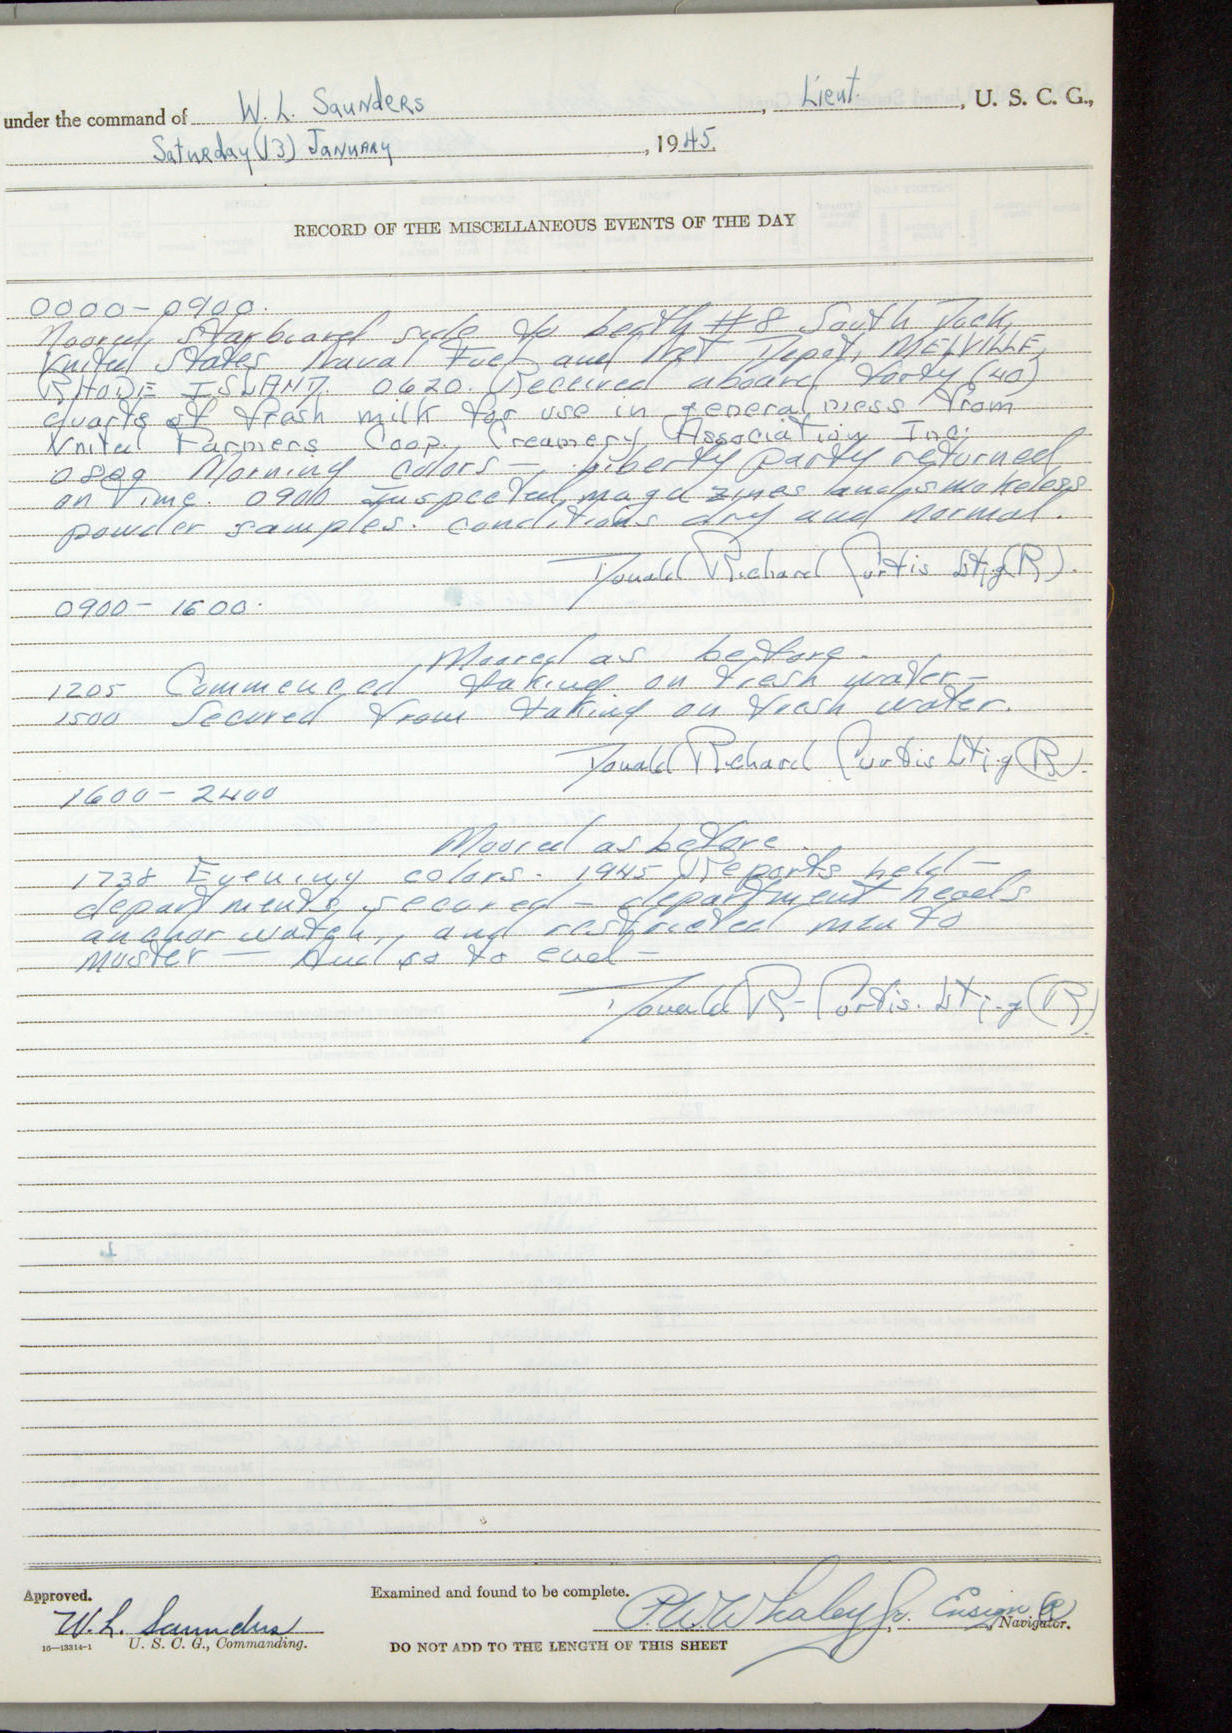 under the command of W. L. Saunders, Lieut., U. S. C. G.,
Saturday (13) January, 1945.
RECORD OF THE MISCELLANEOUS EVENTS OF THE DAY
0000-0900.
Moored Starboard side to berth #8 South Dock,
United States Naval Fuel and Net Depot, MELVILLE,
RHODE ISLAND. 0620. Received aboard forty (40)
quarts of fresh milk for use in general mess from
United Farmers Coop. Creamery Association Inc.
0800 Morning colors — liberty party returned
on time. 0900 Inspected magazines and smokeless
powder samples. conditions dry and normal.
Donald Richard Curtis Lt.j.g (R).
0900-1600.
Moored as before.
1205 Commenced taking on fresh water-
1500 Secured from taking on fresh water.
Donald Richard Curtis Lt.j.g (R).
1600-2400
Moored as before.
1738 Evening colors. 1945 Reports held -
departments secured - department heads
anchor watch, and restricted men to
muster — And so to end -
Donald R- Curtis. Lt.j.g (R)
Approved. Examined and found to be complete.
W. L. Saunders P.W. Whaley Jr. Ensign (R), Navigator.
16—13314-1 U. S. C. G., Commanding.
DO NOT ADD TO THE LENGTH OF THIS SHEET